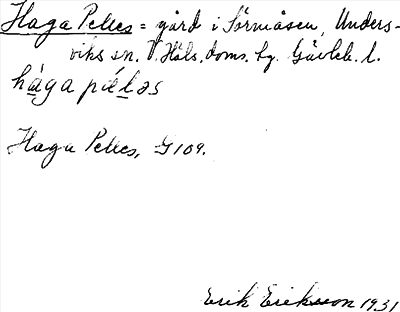 Haga Pelles = gård i Sörmåsen, Unders-
viks sn. V. Häls. doms. hg. Gävleb. l.
hága péləs
Haga Pelles, G 109.
Erik Eriksson 1931